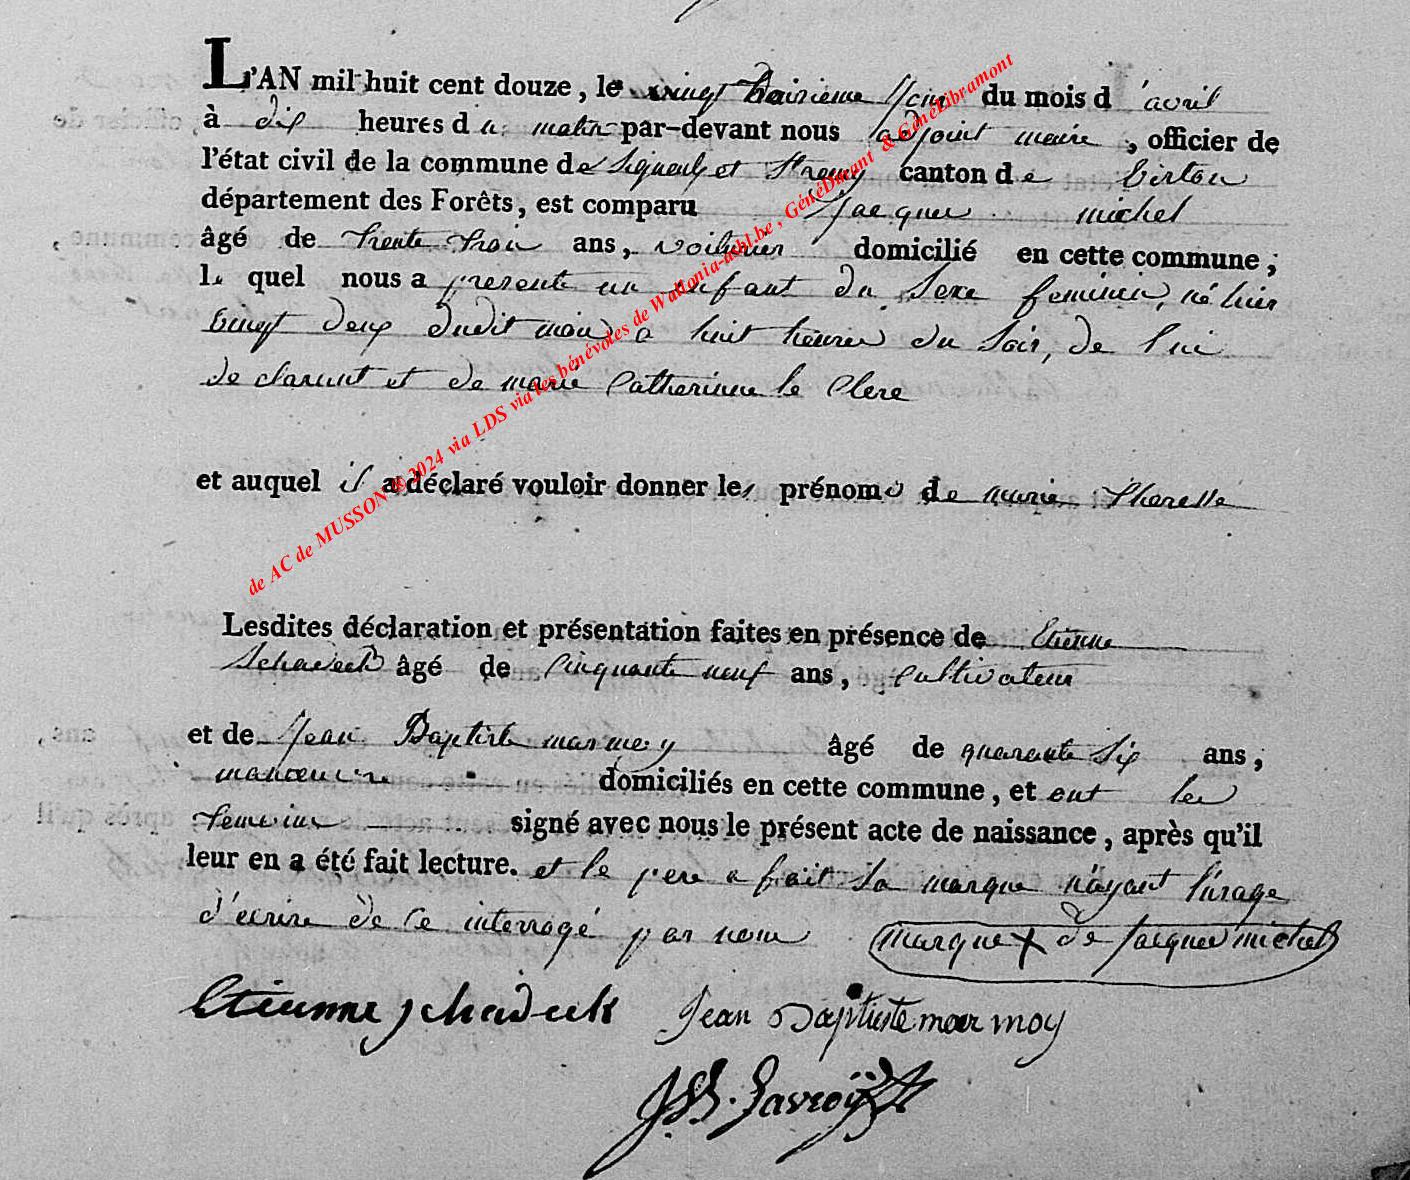 L'AN mil huit cent douze, le vingt troisieme jour du mois d'avril
à dix heures du matin par-devant nous adjoint maire, officier de
l'état civil de la commune de Signeulx et St remy canton de Virton
département des Forêts, est comparu Jacques michel
âgé de trente trois ans, voiturier domicilié en cette commune;
le quel nous a presente un enfant du Sexe feminin, né hier
vingt deux dudit mois a huit heures du Soir, de lui
declarant et de marie Catherinne le Clere
et auquel il a déclaré vouloir donner les prénoms de marie Theresse
Lesdites déclaration et présentation faites en présence de Etienne
Schadeck âgé de Cinquante neuf ans, Cultivateur
et de Jean Baptiste marmoy âgé de quarante Six ans,
manoeuvre domiciliés en cette commune, et ont les
temoins signé avec nous le présent acte de naissance, après qu'il
leur en a été fait lecture. et le pere a fait Sa marque n'ayant l'usage
d'ecrire de ce interrogé par nous marque X de Jacques michel
Etienne schadeck Jean Baptiste mar moy
de AC de MUSSON © 2024 via LDS via les bénévotes de Wallonia-asbl.be, GénéDurant & GénéLibramont